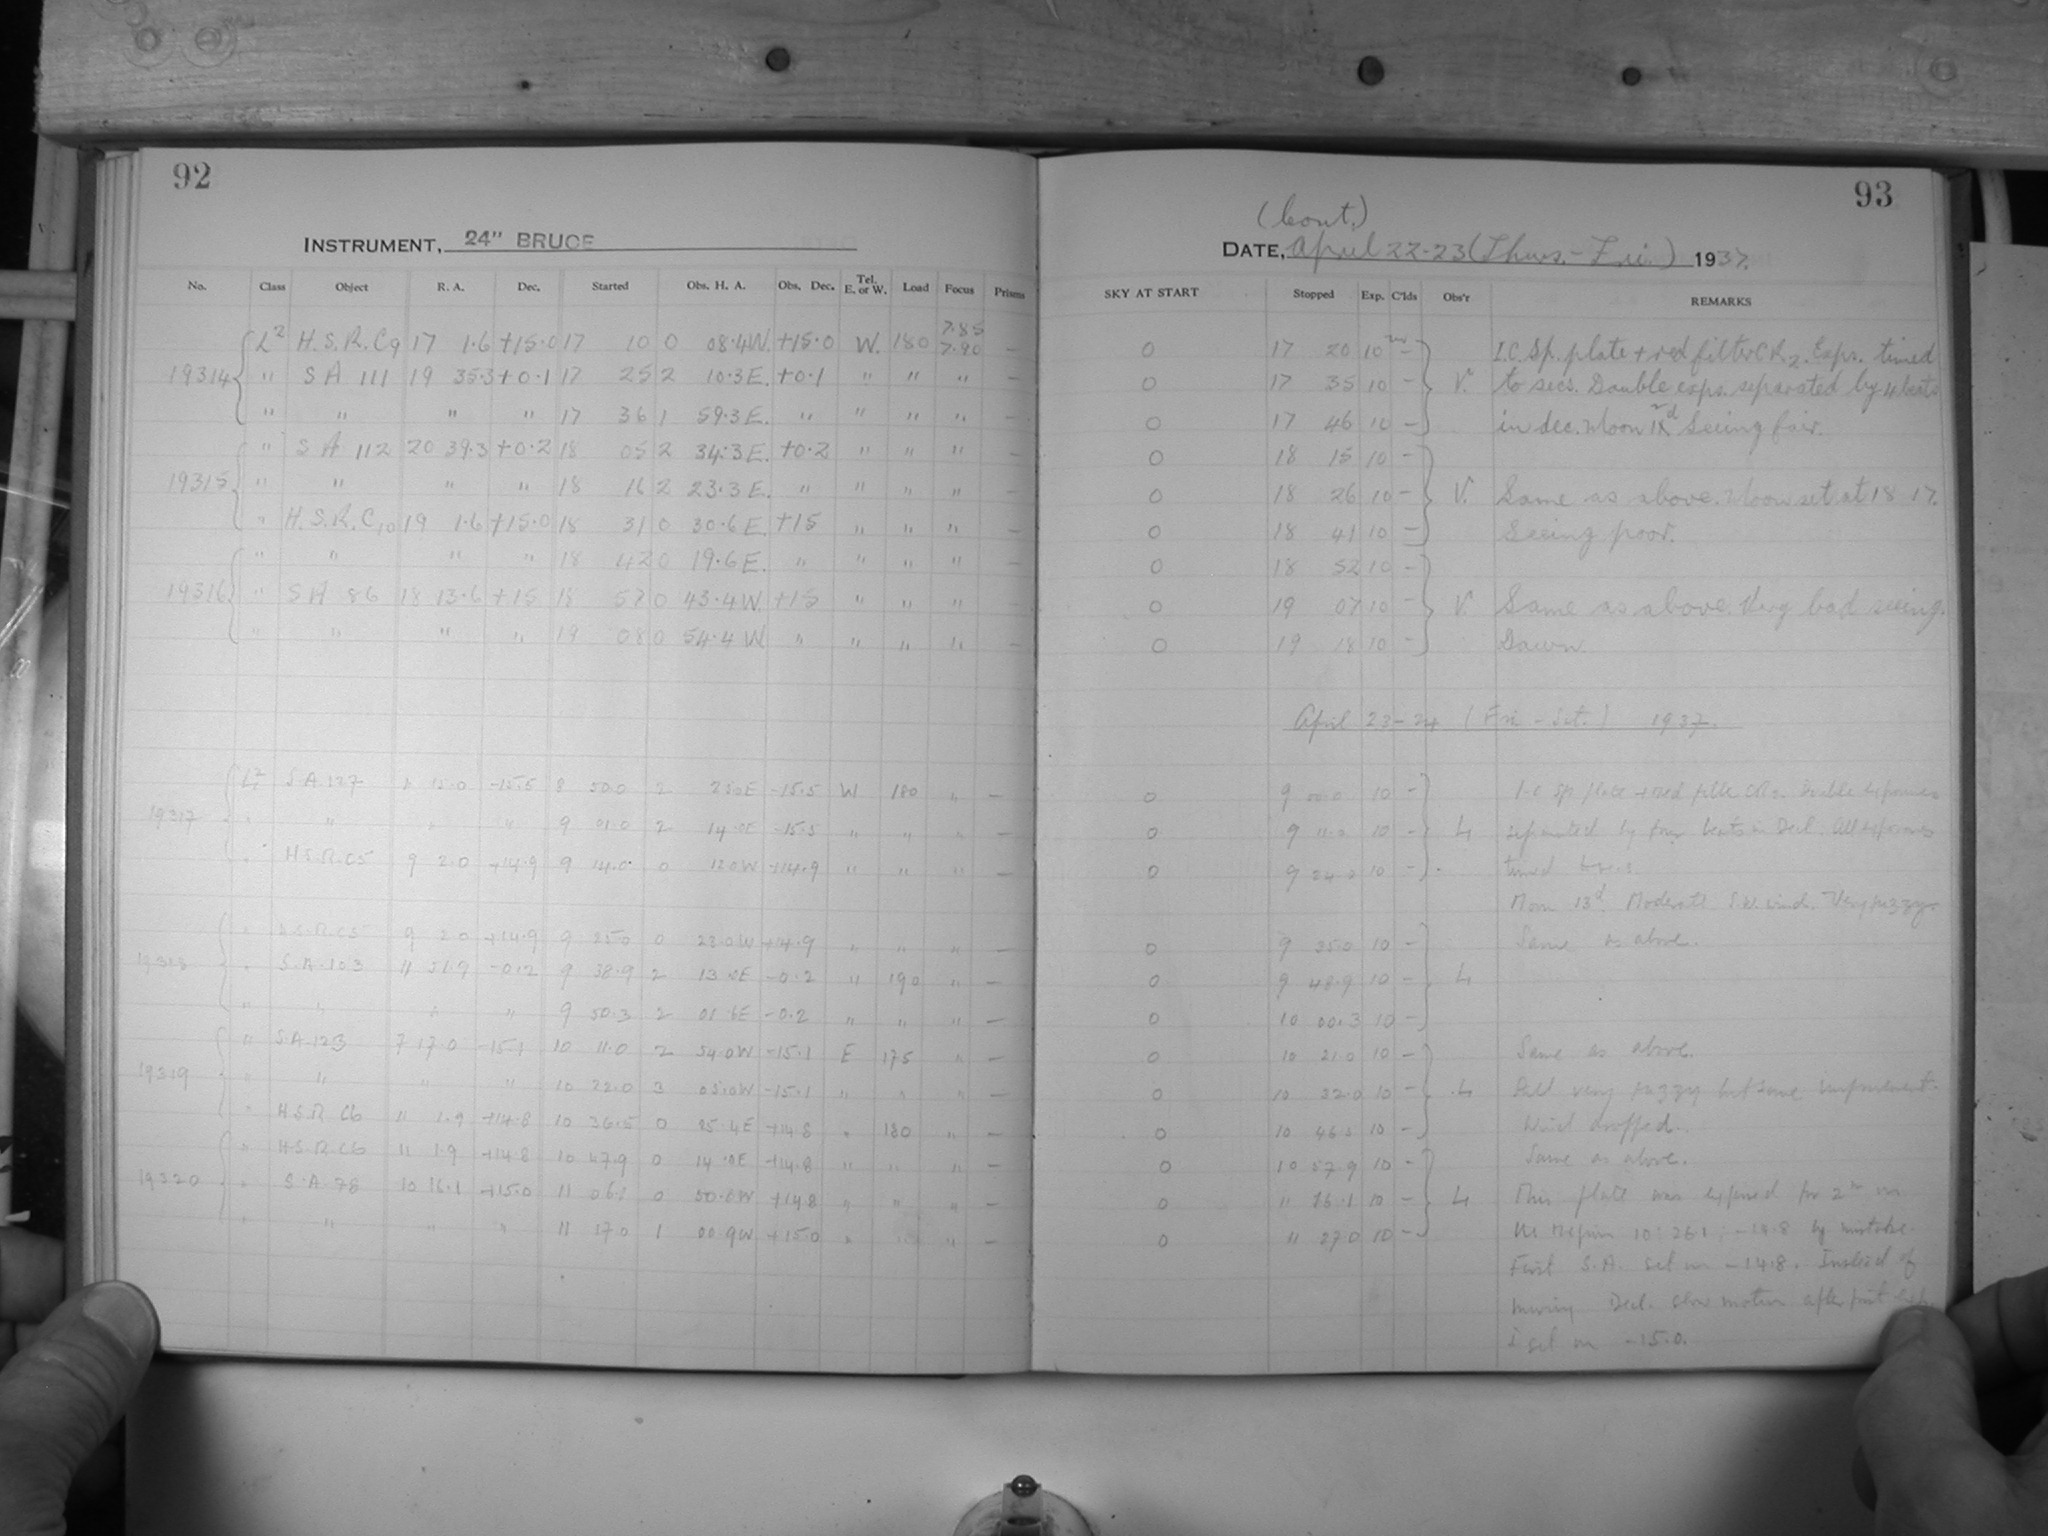 92
INSTRUMENT, 24" BRUCE
No. Class Object R. A. Dec. Started Obs. H. A. Obs. Dec. Tel. E. or W. Load Focus Prisms
L2 H.S.R.C9 17 1.6 +15.0 17 10 0 08.4W. +15.0 W. 180 7.85 7.90 —
19314 " SA 111 19 35.3 +0.1 17 25 2 10.3E. +0.1 " " " —
" " " " 17 36 1 59.3E. " " " " —
" SA 112 20 39.3 +0.2 18 05 2 34.3E. +0.2 " " " —
19315 " " " " 18 16 2 23.3E. " " " " —
" H.S.R.C10 19 1.6 +15.0 18 31 0 30.6E +15 " " " —
" " " " 18 42 0 19.6E. " " " " —
19316 " SA 86 18 13.6 +15 18 57 0 43.4W +15 " " " —
" " " " 19 08 0 54.4W " " " " —
L2 S.A.127 15.0 -15.5 8 50.0 2 25.0E -15.5 W 180 " —
19317 " " " " 9 01.0 2 14.0E -15.5 " " " —
" H.S.R.C5 9 2.0 +14.9 9 14.0 0 12.0W +14.9 " " " —
" H.S.R.C5 9 2.0 +14.9 9 25.0 0 23.0W +14.9 " " " —
19318 " S.A.103 11 51.9 -0.2 9 38.9 2 13.0E -0.2 " 190 " —
" " " " 9 50.3 2 01.6E -0.2 " " " —
" S.A.123 7 17.0 -15.1 10 11.0 2 54.0W -15.1 E 175 " —
19319 " " " " 10 22.0 3 05.0W -15.1 " " " —
" H.S.R C6 11 1.9 +14.8 10 36.5 0 25.4E +14.8 " 180 " —
" H.S.R.C6 11 1.9 +14.8 10 47.9 0 14.0E +14.8 " " " —
19320 " S.A.78 10 16.1 +15.0 11 06.1 0 50.0W +14.8 " " " —
" " " " 11 17.0 1 00.9W +15.0 " " " —
93
(Cont.)
DATE, April 22-23 (Thurs.-Fri.) 1937.
SKY AT START Stopped Exp. C'lds Obs'r REMARKS
0 17 20 10m — I.C. Sp. plate + red filter CR2. Exps. timed
0 17 35 10 — V. to secs. Double exps. separated by 4 beats
0 17 46 10 — in dec. Moon 12d Seeing fair.
0 18 15 10 —
0 18 26 10 — V. Same as above. Moon set at 18 17.
0 18 41 10 — Seeing poor.
0 18 52 10 —
0 19 07 10 — V. Same as above. Very bad seeing.
0 19 18 10 — Dawn.
April 23-24 (Fri - Sat.) 1937.
0 9 00.0 10 — I.C Sp plate + red filter CR2. Double exposures
0 9 11.0 10 — L separated by four beats in Decl. All exposures
0 9 24.0 10 — timed
Moon 13d. Moderate S.W. wind. Very fuzzy.
0 9 35.0 10 — Same as above.
0 9 48.9 10 — L
0 10 00.3 10 —
0 10 21.0 10 — Same as above.
0 10 32.0 10 — L Still very fuzzy but some improvement.
0 10 46.5 10 — Wind dropped.
0 10 57.9 10 — Same as above.
0 11 16.1 10 — L This plate was exposed for 2m on
0 11 27.0 10 — 10:26.1; -14.8 by mistake.
First S.A. set on -14.8. Instead of
moving Decl. slow motion after first exp.
I set on -15.0.